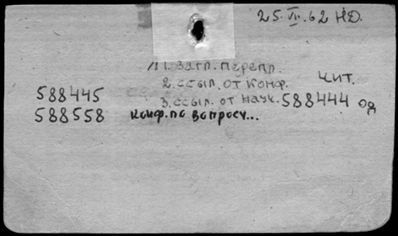 25.VI.62 НД.
1. загл. перепл.
2. ссыл. от конф. чит.
588445 3. ссыл. от наук. 588444 од
588558 конф. по вопросу...